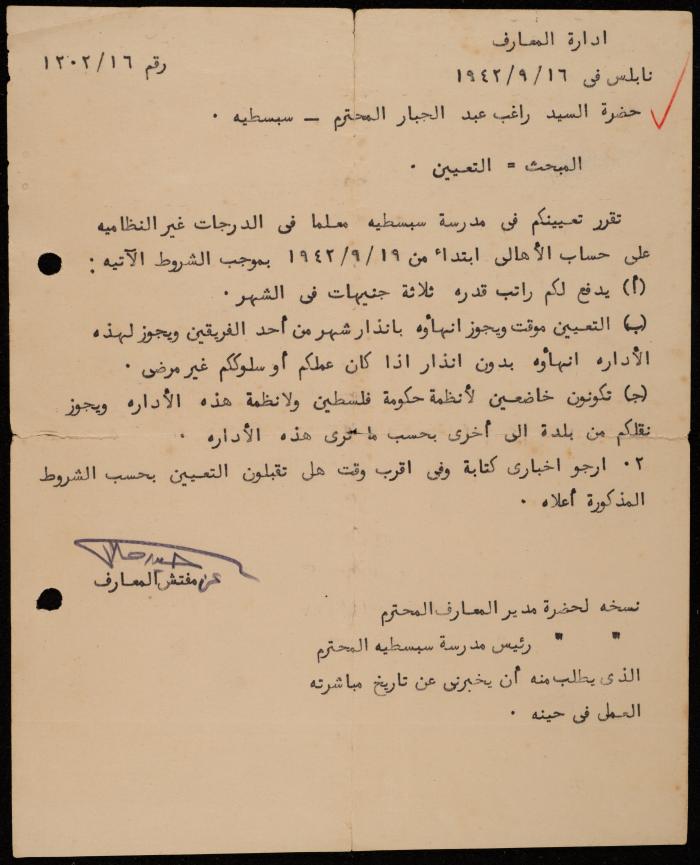 ادارة المعارف
رقم ١٢٠٢/١٦
نابلس فى ١٩٤٢/٩/١٦
حضرة السيد راغب عبد الجبار المحترم – سبسطيه ٠
المبحث = التعيين ٠
تقرر تعيينكم فى مدرسة سبسطيه معلما فى الدرجات غير النظاميه
على حساب الأهالى ابتداء من ١٩٤٢/٩/١٩ بموجب الشروط الآتيه :
(أ) يدفع لكم راتب قدره ثلاثة جنيهات فى الشهر ٠
(ب) التعيين موقت ويجوز انهاؤه بانذار شهر من أحد الفريقين ويجوز لهذه
الأداره انهاؤه بدون انذار اذا كان عملكم أو سلوككم غير مرضى ٠
(ج) تكونون خاضعين لأنظمة حكومة فلسطين ولانظمة هذه الأداره ويجوز
نقلكم من بلدة الى أخرى بحسب ما ترى هذه الأداره ٠
٢٠ ارجو اخبارى كتابة وفى اقرب وقت هل تقبلون التعيين بحسب الشروط
المذكورة أعلاه ٠
عن مفتش المعارف
نسخه لحضرة مدير المعارف المحترم
" " رئيس مدرسة سبسطيه المحترم
الذى يطلب منه أن يخبرنى عن تاريخ مباشرته
العمل فى حينه ٠